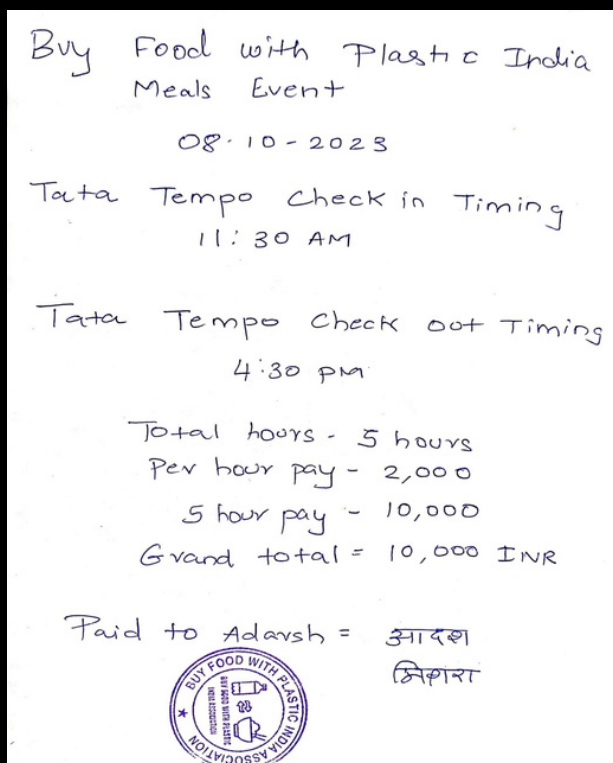 Buy Food with Plastic India
Meals Event
08-10-2023
Tata Tempo Check in Timing
11:30 AM
Tata Tempo Check oot Timing
4:30 PM
Total hours - 5 hours
Per hour pay - 2,000
5 hour pay - 10,000
Grand total = 10,000 INR
Paid to Adarsh = आदश
मिशरा
BUY FOOD WITH PLASTIC INDIA ASSOCIATION